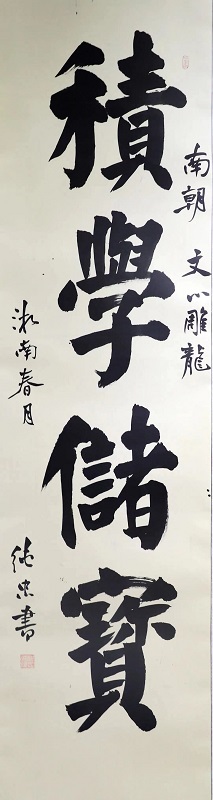 南朝 文心雕龍
積學儲寶
南春月
忠書